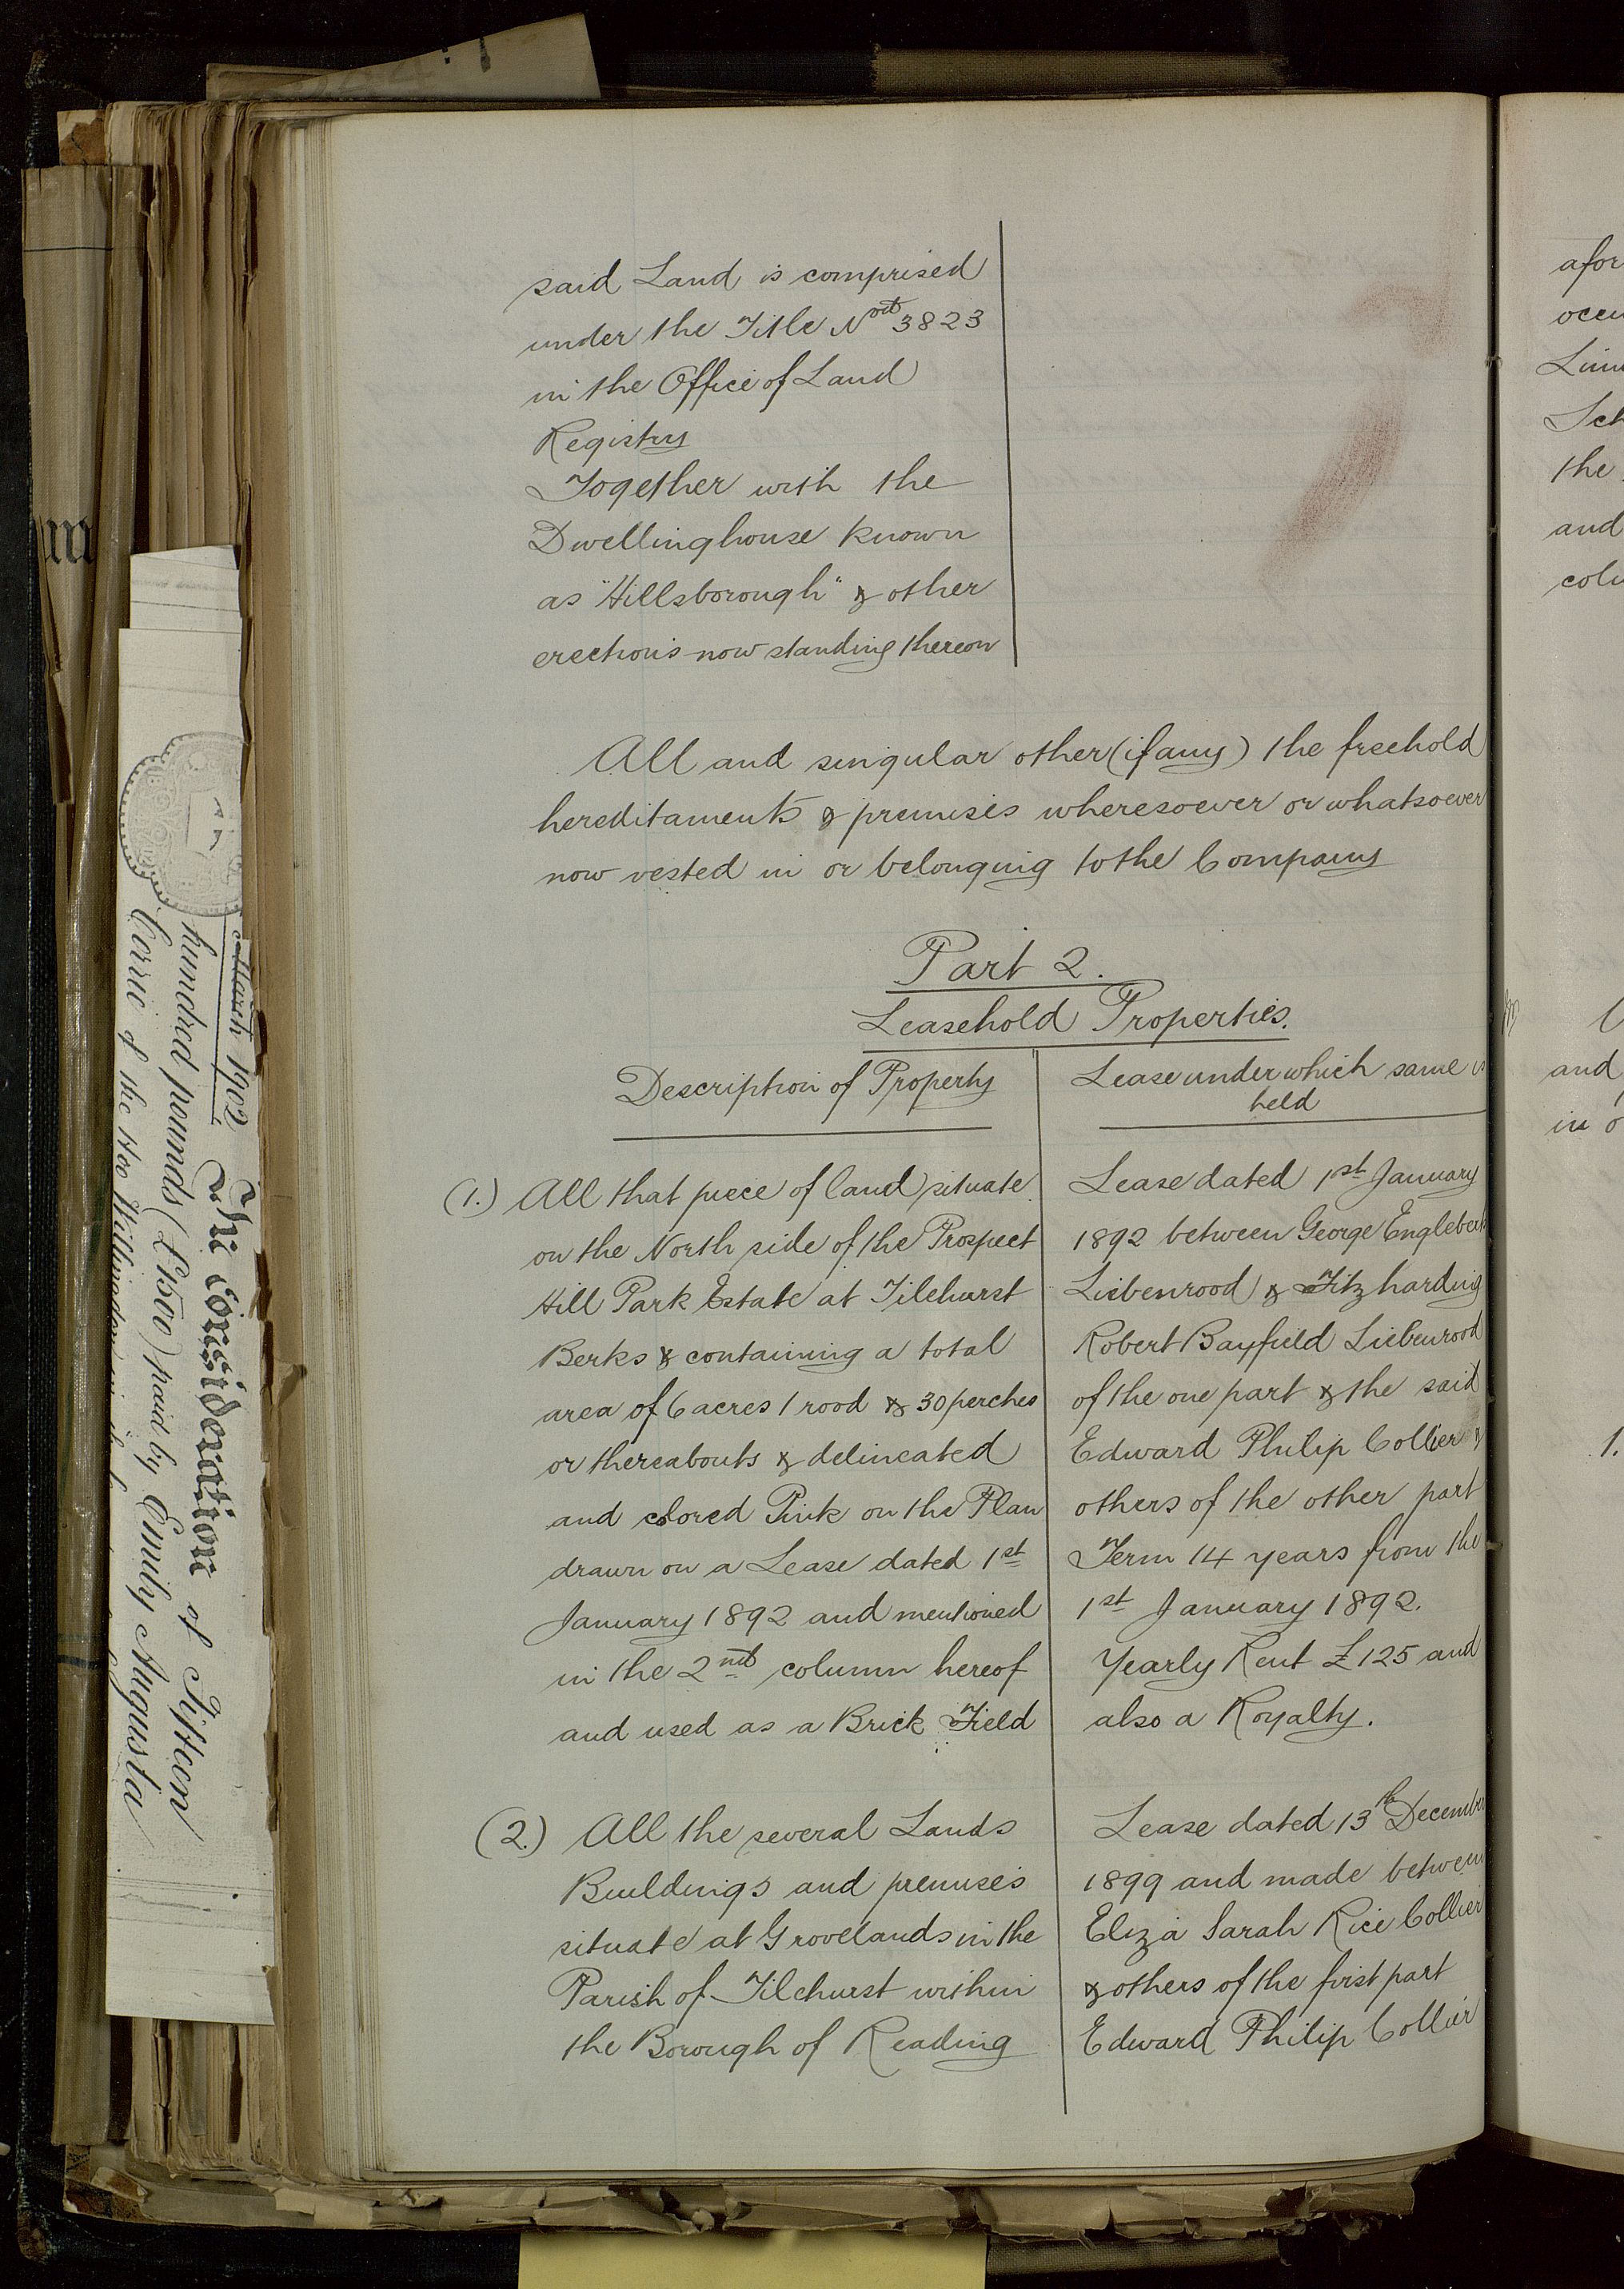 said Land is comprised
under the Title No 3823
in the Office of Land
Registry
Together with the
Dwellinghouse known
as "Hillsborough" & other
erections now standing thereon
All and singular other (if any) the freehold
hereditaments & premises wheresoever or whatsoever
now vested in or belonging to the Company
Part 2.
Leasehold Properties.
Description of Property
(1.) All that piece of land situate
on the North side of the Prospect
Hill Park Estate at Tilehurst
Berks & containing a total
area of 6 acres 1 rood & 30 perches
or thereabouts & delineated
and colored Pink on the Plan
drawn on a Lease dated 1st
January 1892 and mentioned
in the 2nd column hereof
and used as a Brick Field
Lease under which same is
held
Lease dated 1st January
1892 between George Englebert
Liebenrood & Fitzharding
Robert Bayfield Liebenrood
of the one part & the said
Edward Philip Collier &
others of the other part
Term 14 years from the
1st January 1892.
Yearly Rent £125 and
also a Royalty.
(2.) All the several Lands
Buildings and premises
situate at Grovelands in the
Parish of Tilehurst within
the Borough of Reading
Lease dated 13th December
1899 and made between
Eliza Sarah Rice Collier
& others of the first part
Edward Philip Collier
March 1902 The Consideration of Fifteen
hundred pounds (£1500) paid by Emily Augusta
Corrie of the Hoo Willingdon
afor
occu
the
and
colu
and
in o
1.